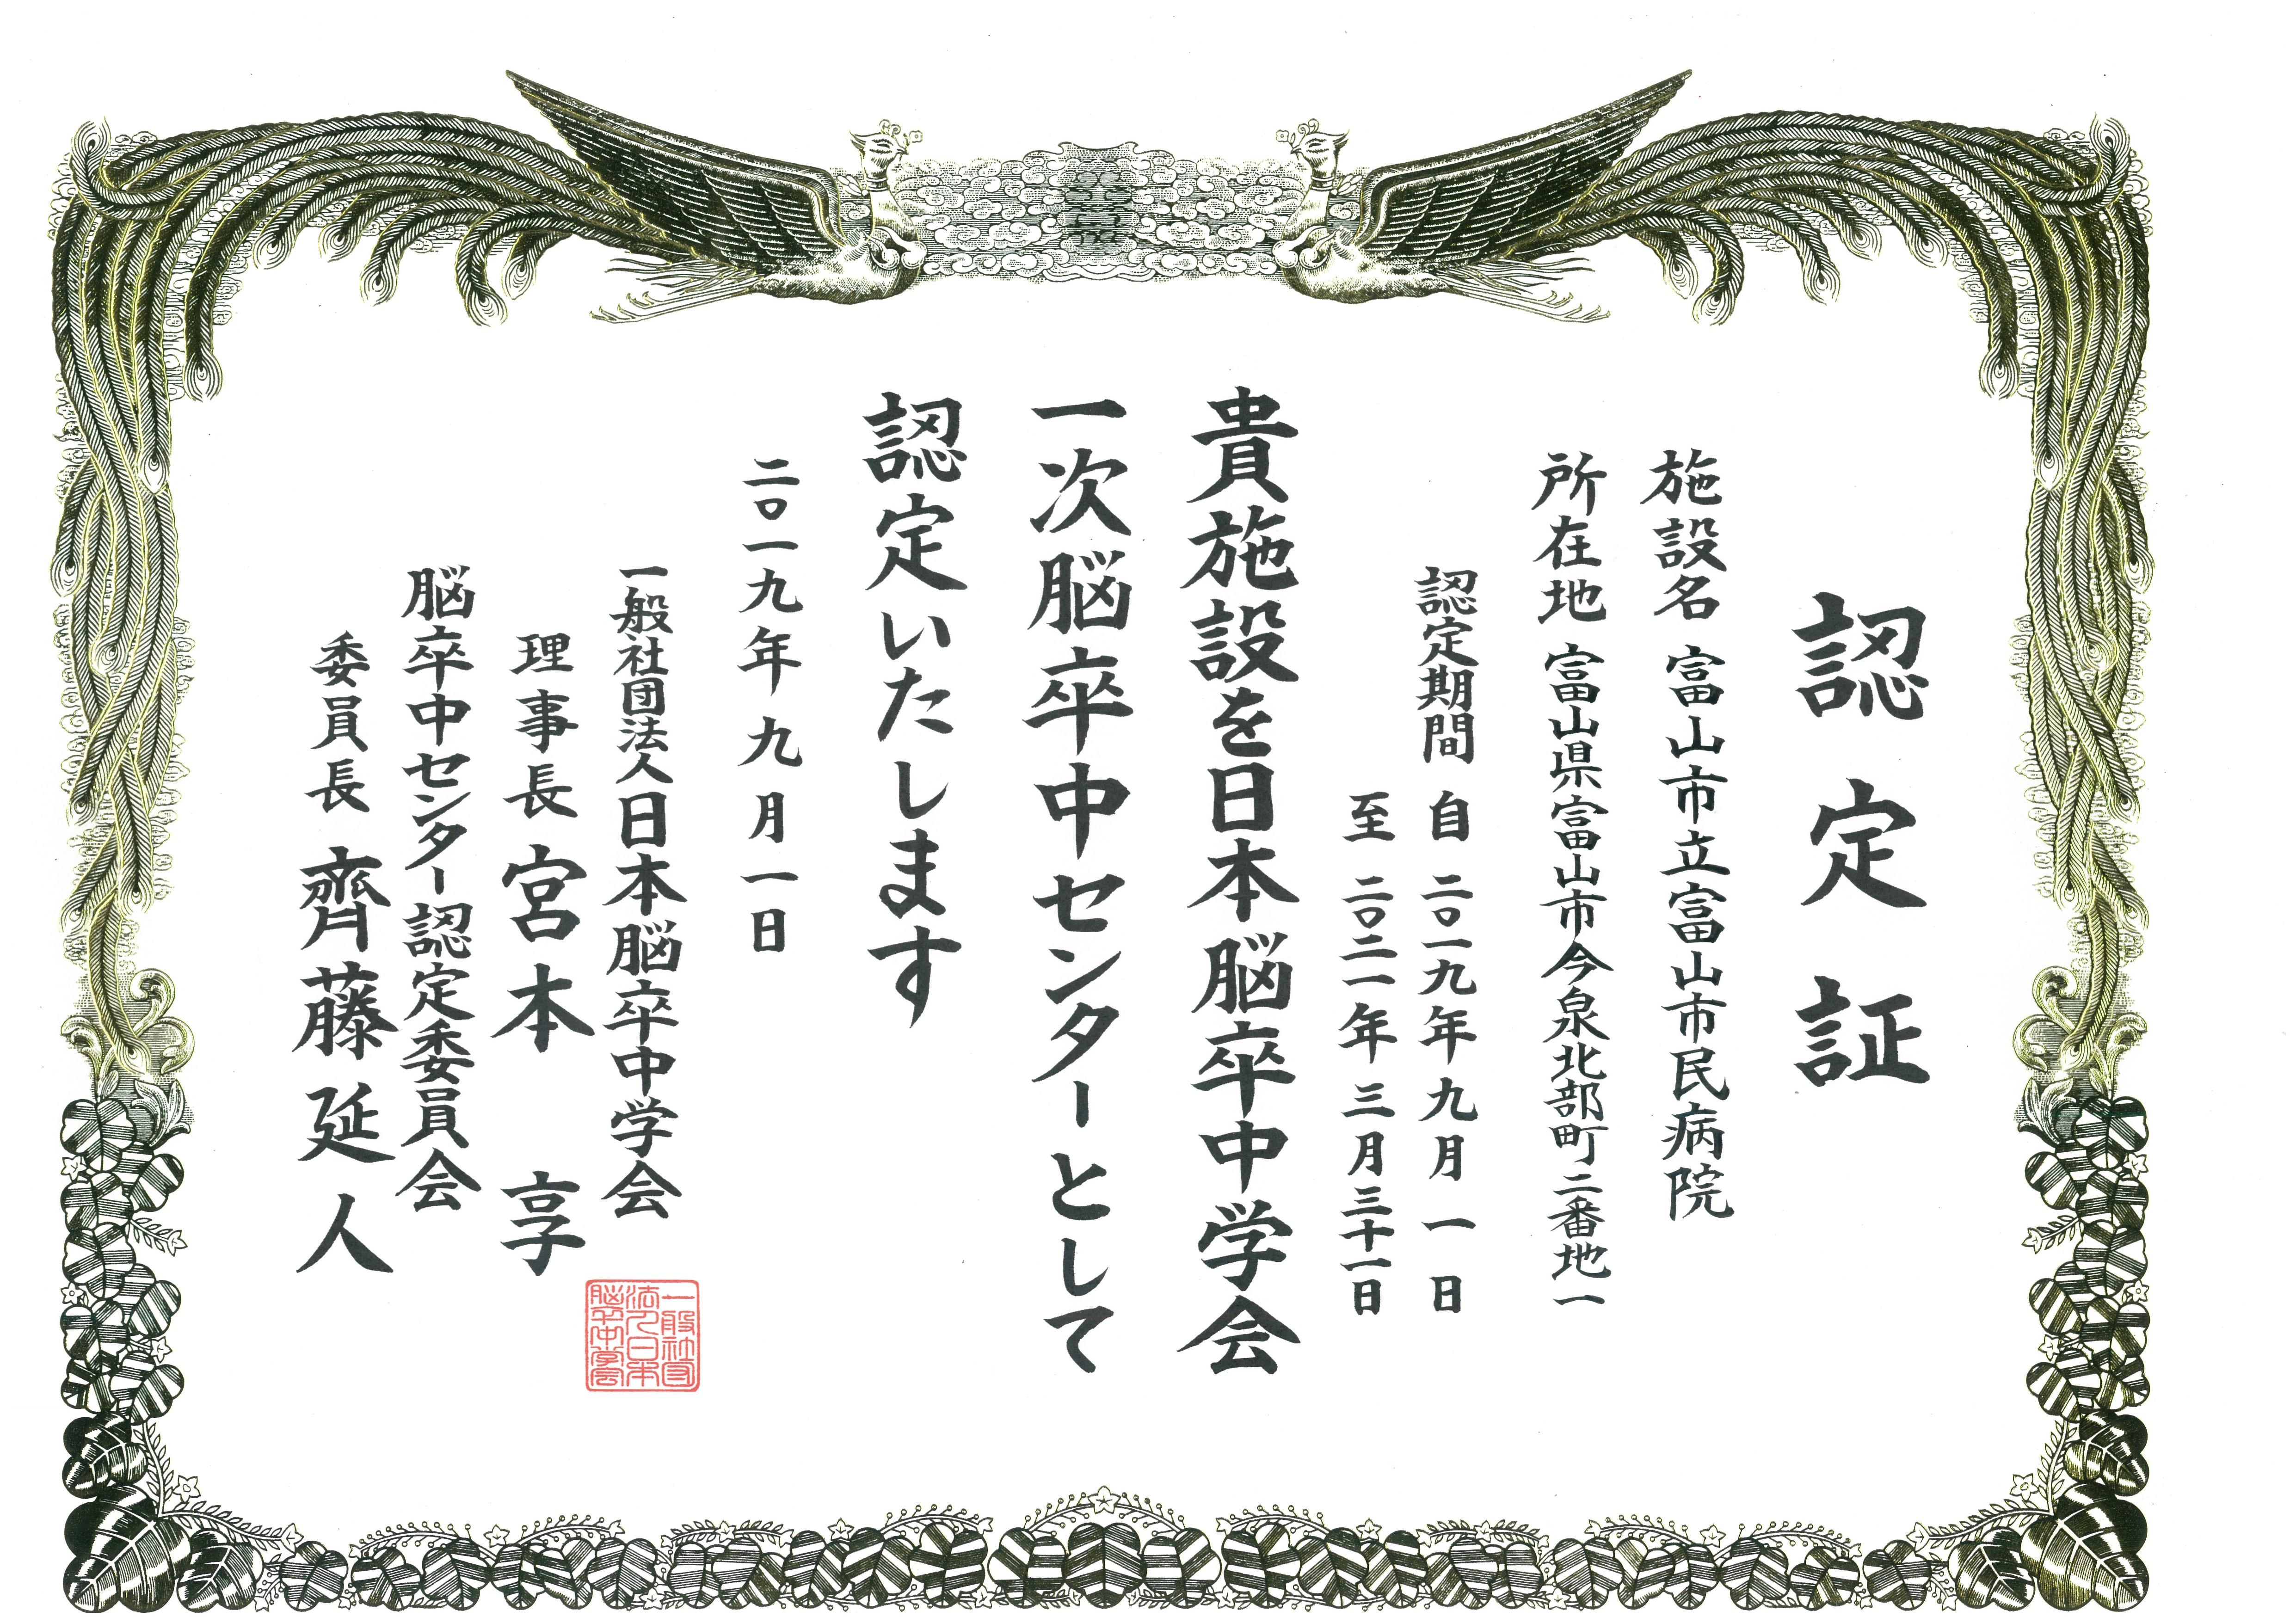 認定証
施設名 富山市立富山市民病院
所在地 富山県富山市今泉北部町二番地一
認定期間 自 二〇一九年九月一日
至 二〇二一年三月三十一日
貴施設を日本脳卒中学会
一次脳卒中センターとして
認定いたします
二〇一九年九月一日
一般社団法人日本脳卒中学会
理事長 宮本 享
脳卒中センター認定委員会
委員長 齊藤延人
一般社団
法人日本
脳卒中学会